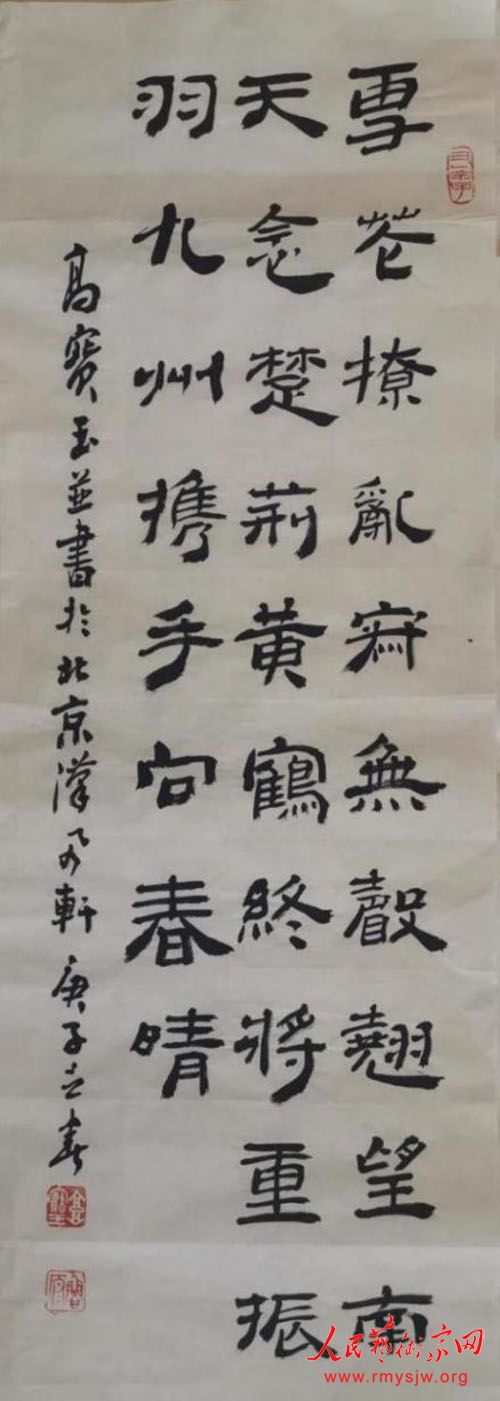 雪花撩亂寂無聲翹望南
天念楚荊黄鶴終將重振
羽九州携手向春晴
高寳玉並書於北京漢風軒庚子立春
人民藝術家网
www.rmysjw.org